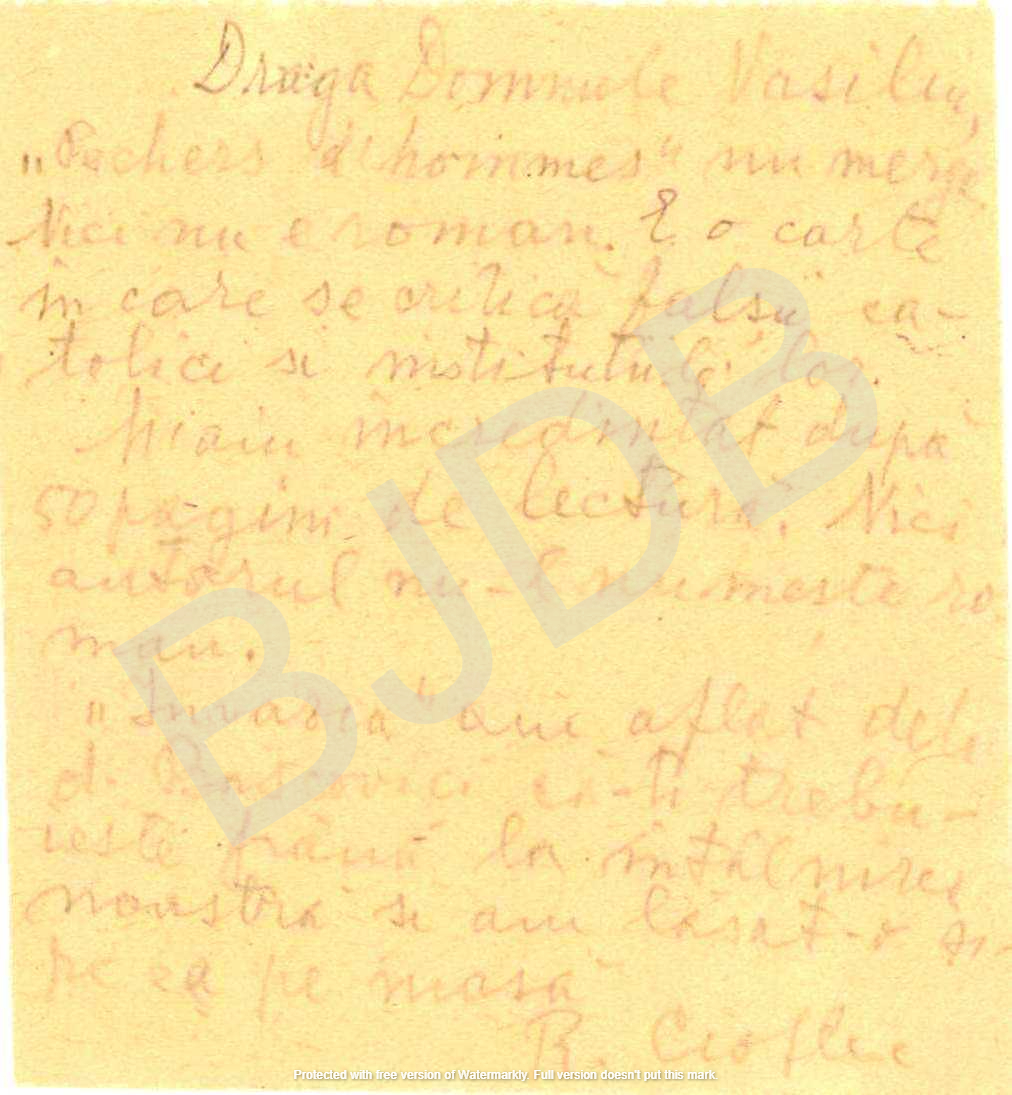 Draga Domnule Vasiliu,
„Pechers d'hommes" nu merge
Nici nu e roman. E o carte
în care se critică falșii ca-
tolici si institutiile lor.
M'am incredintat după
50 pagini de lectură. Nici
autorul nu-l numeste ro
man.
„Invazia" am aflat dela
d. că-ti trebu-
ieste până la întâlnirea
noastră si am lăsat-o si
pe ea pe masă
R. Cioflec
BJDB
Protected with free version of Watermarkly. Full version doesn't put this mark.